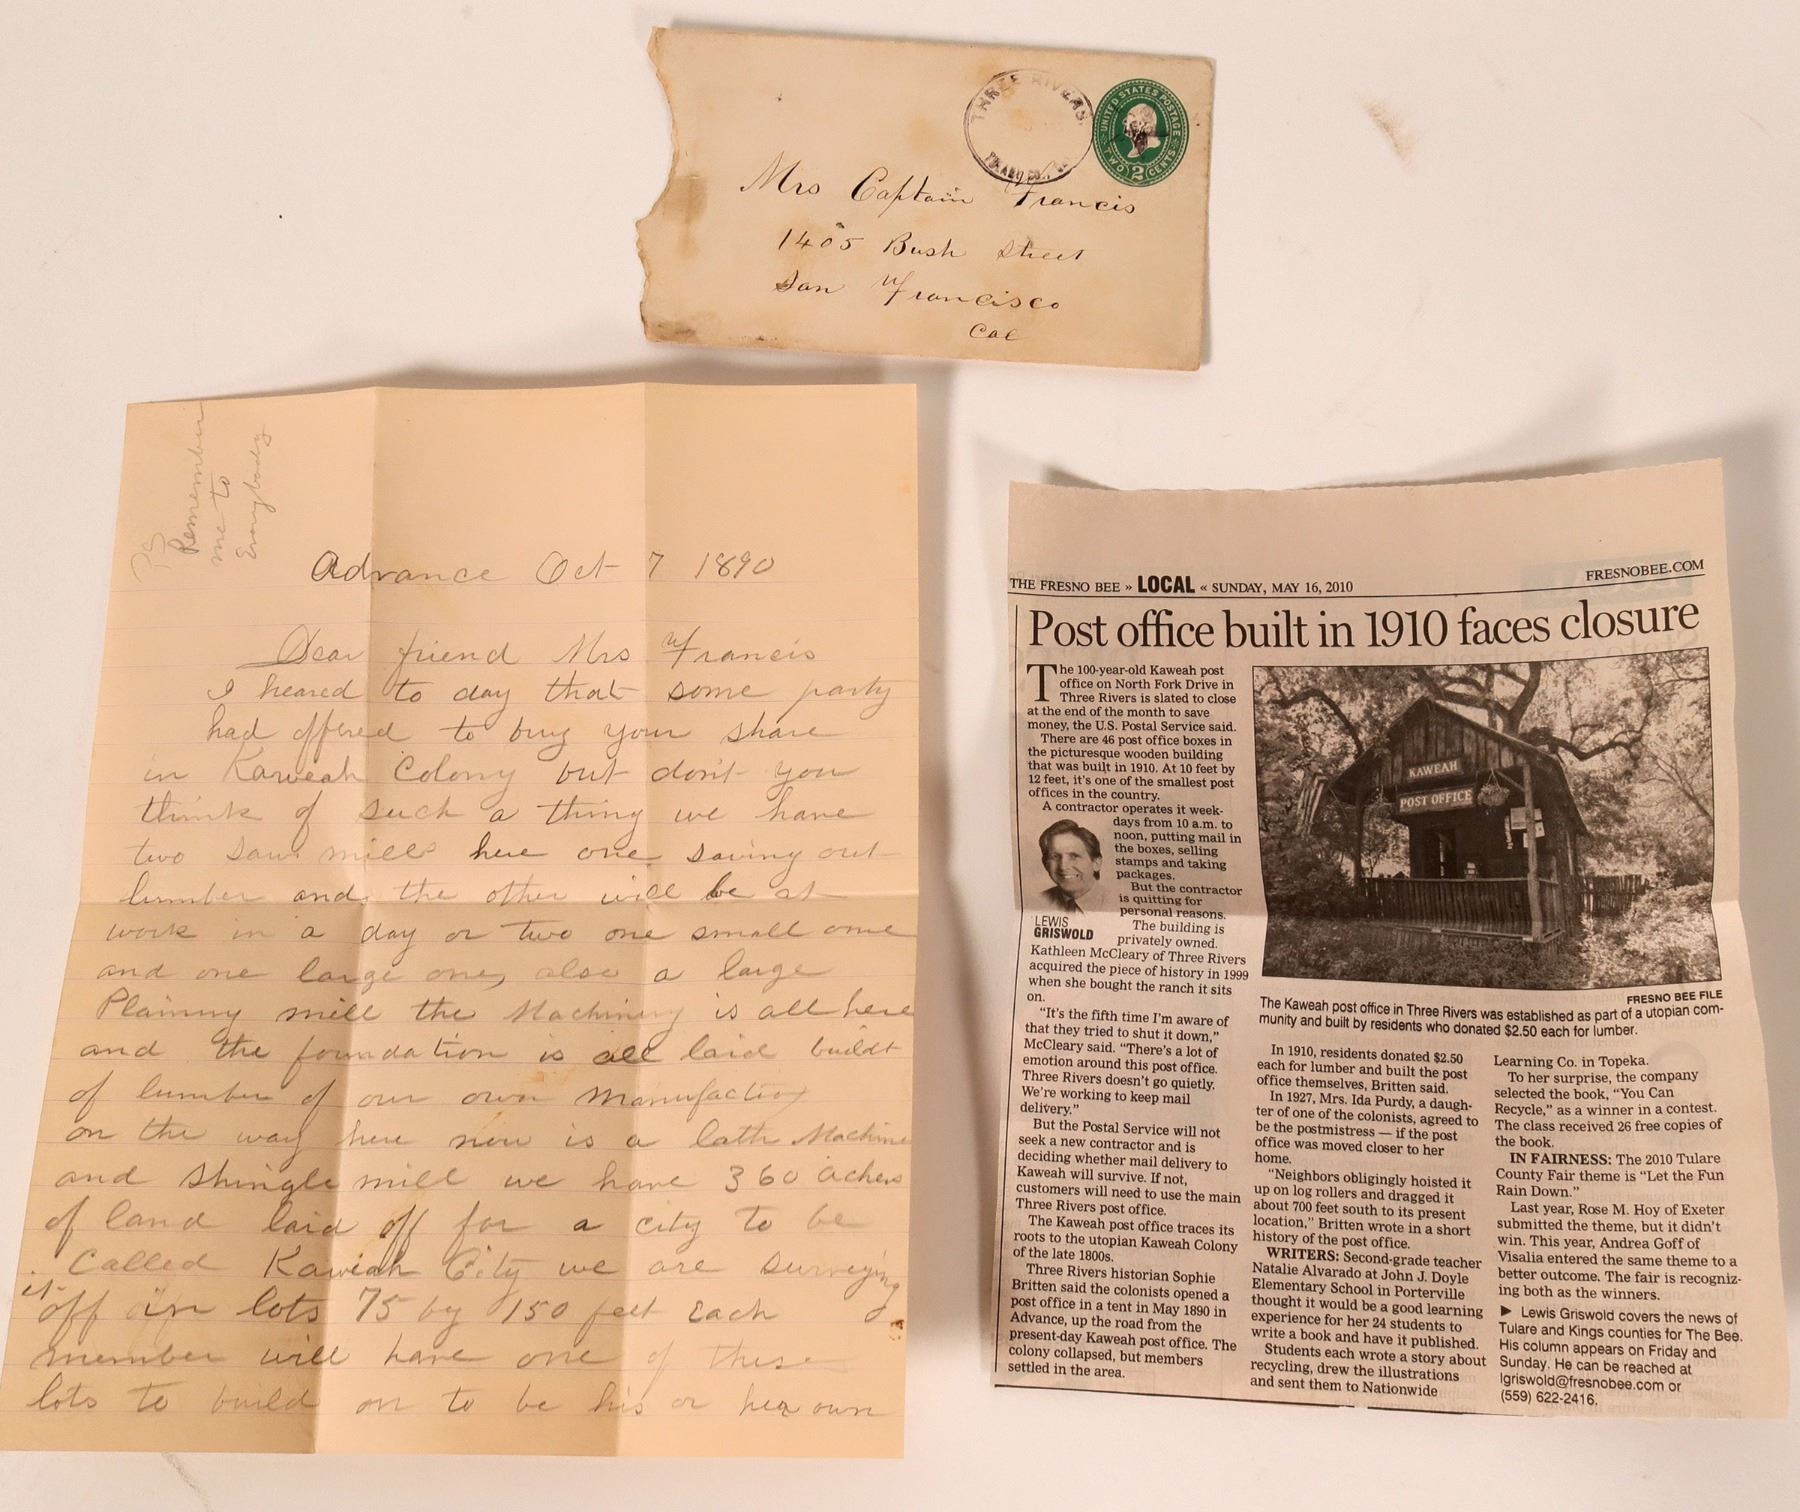 THREE RIVERS,
UNITED STATES POSTAGE
TWO 2 CENTS
Mrs Captain Francis
1405 Bush Street
San Francisco
Cal
PS
Remember
me to
Everybody
Advance Oct 7 1890
Dear friend Mrs Francis
I heared to day that some party
had offered to buy your share
in Kaweah Colony but don't you
think of such a thing we have
two saw mills here one sawing out
lumber and the other will be at
work in a day or two one small one
and one large one, also a large
Plaining mill the Machinery is all here
and the foundation is all laid buildt
of lumber of our own manufaction
on the way here now is a lath Machine
and Shingle mill we have 360 achers
of land laid off for a city to be
Called Kaweah City we are surveying
it off in lots 75 by 150 feet Each
member will have one of these
lots to build on to be his or her own
THE FRESNO BEE » LOCAL « SUNDAY, MAY 16, 2010
FRESNOBEE.COM
Post office built in 1910 faces closure
The 100-year-old Kaweah post
office on North Fork Drive in
Three Rivers is slated to close
at the end of the month to save
money, the U.S. Postal Service said.
There are 46 post office boxes in
the picturesque wooden building
that was built in 1910. At 10 feet by
12 feet, it's one of the smallest post
offices in the country.
A contractor operates it week-
days from 10 a.m. to
noon, putting mail in
the boxes, selling
stamps and taking
packages.
But the contractor
is quitting for
personal reasons.
The building is
privately owned.
LEWIS
GRISWOLD
Kathleen McCleary of Three Rivers
acquired the piece of history in 1999
when she bought the ranch it sits
on.
"It's the fifth time I'm aware of
that they tried to shut it down,"
McCleary said. "There's a lot of
emotion around this post office.
Three Rivers doesn't go quietly.
We're working to keep mail
delivery."
But the Postal Service will not
seek a new contractor and is
deciding whether mail delivery to
Kaweah will survive. If not,
customers will need to use the main
Three Rivers post office.
The Kaweah post office traces its
roots to the utopian Kaweah Colony
of the late 1800s.
Three Rivers historian Sophie
Britten said the colonists opened a
post office in a tent in May 1890 in
Advance, up the road from the
present-day Kaweah post office. The
colony collapsed, but members
settled in the area.
KAWEAH
POST OFFICE
FRESNO BEE FILE
The Kaweah post office in Three Rivers was established as part of a utopian com-
munity and built by residents who donated $2.50 each for lumber.
In 1910, residents donated $2.50
each for lumber and built the post
office themselves, Britten said.
In 1927, Mrs. Ida Purdy, a daugh-
ter of one of the colonists, agreed to
be the postmistress — if the post
office was moved closer to her
home.
"Neighbors obligingly hoisted it
up on log rollers and dragged it
about 700 feet south to its present
location," Britten wrote in a short
history of the post office.
WRITERS: Second-grade teacher
Natalie Alvarado at John J. Doyle
Elementary School in Porterville
thought it would be a good learning
experience for her 24 students to
write a book and have it published.
Students each wrote a story about
recycling, drew the illustrations
and sent them to Nationwide
Learning Co. in Topeka.
To her surprise, the company
selected the book, "You Can
Recycle," as a winner in a contest.
The class received 26 free copies of
the book.
IN FAIRNESS: The 2010 Tulare
County Fair theme is "Let the Fun
Rain Down."
Last year, Rose M. Hoy of Exeter
submitted the theme, but it didn't
win. This year, Andrea Goff of
Visalia entered the same theme to a
better outcome. The fair is recogniz-
ing both as the winners.
▶ Lewis Griswold covers the news of
Tulare and Kings counties for The Bee.
His column appears on Friday and
Sunday. He can be reached at
lgriswold@fresnobee.com or
(559) 622-2416.